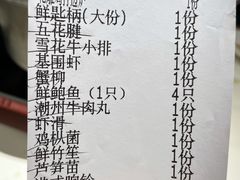 鲜匙柄(大份) 1份
五花腱 1份
雪花牛小排 1份
基围虾 1份
蟹柳 1份
鲜鲍鱼（1只） 4只
潮州牛肉丸 1份
虾滑 1份
鸡枞菌 1份
鲜竹笙 1份
芦笋苗 1份